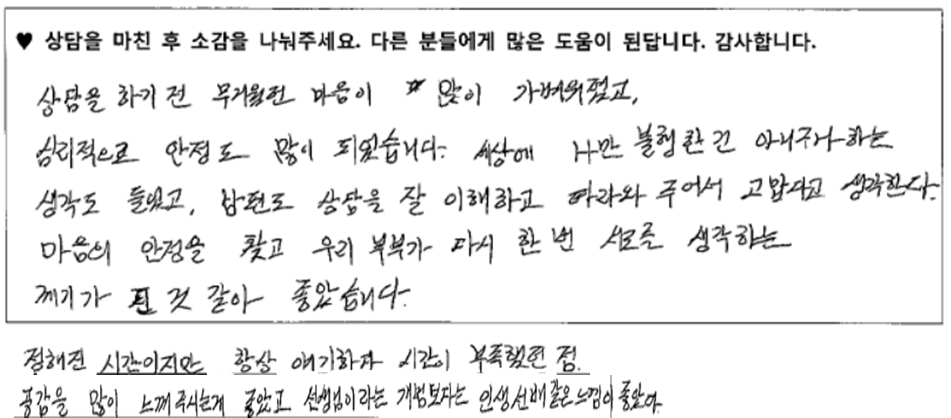 ♥ 상담을 마친 후 소감을 나눠주세요. 다른 분들에게 많은 도움이 된답니다. 감사합니다.
상담을 하기전 무거웠던 마음이 많이 가벼워졌고,
심리적으로 안정도 많이 되었습니다. 세상에 나만 불험한건 아니구나하는
생각도 들었고, 남편도 상담을 잘 이해하고 따라와 주어서 고맙다고 생각한다.
마음의 안정을 찾고 우리 부부가 다시 한 번 서로를 생각하는
께기가 된 것 같아 좋았습니다.
정해진 시간이지만 항상 얘기하다 시간이 부족했던 점.
공감을 많이 느껴주시는게 좋았고 선생님이라는 개념보다는 인생선배같은느낌이 좋았다